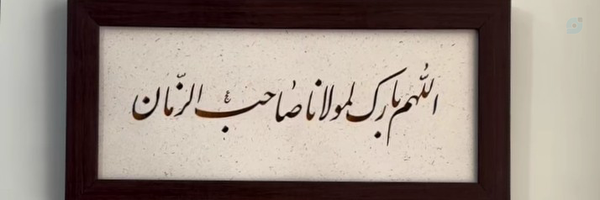 اللّهم بارک لمولانا صاحب الزّمان